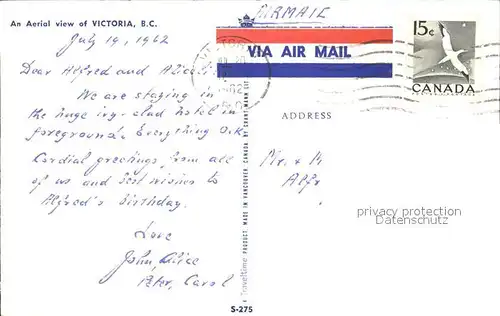 An Aerial view of VICTORIA, B.C.
July 19, 1962
Dear Alfred and Alice:
We are staying in
the huge ivy-clad hotel in
foreground. Everything O.K.
Cordial greetings from all
of us and best wishes to
Alfred's Birthday.
Love
John, Alice
Peter, Carol
S-275
Traveltime PRODUCT. MADE IN VANCOUVER, CANADA BY GRANT MANN LITHO
AIRMAIL
VIA AIR MAIL
15¢
CANADA
ADDRESS
Mr. &
Alfr
privacy protection
Datenschutz